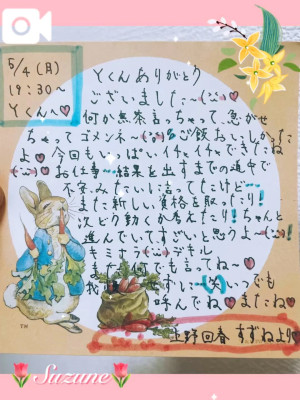 5/4(月)
19:30〜
Yくん〜
Yくんありがとう
ございました〜
何か無茶言っちゃって、急がせ
ちゃってゴメンネ〜ご飯おいしかった
よ 今回もいっぱいイチャイチャできたね
お仕事〜結果を出すまでの途中で
不安みたいに言ってたけど〜
また新しい資格を取ったり!
次どう動くか考えたり!ちゃんと
進んでいてすごいと思うよ〜
キミならデキル
また何でも言ってね〜
いつでも
呼んでね またね
上野回春 すずねより
TM
Suzune